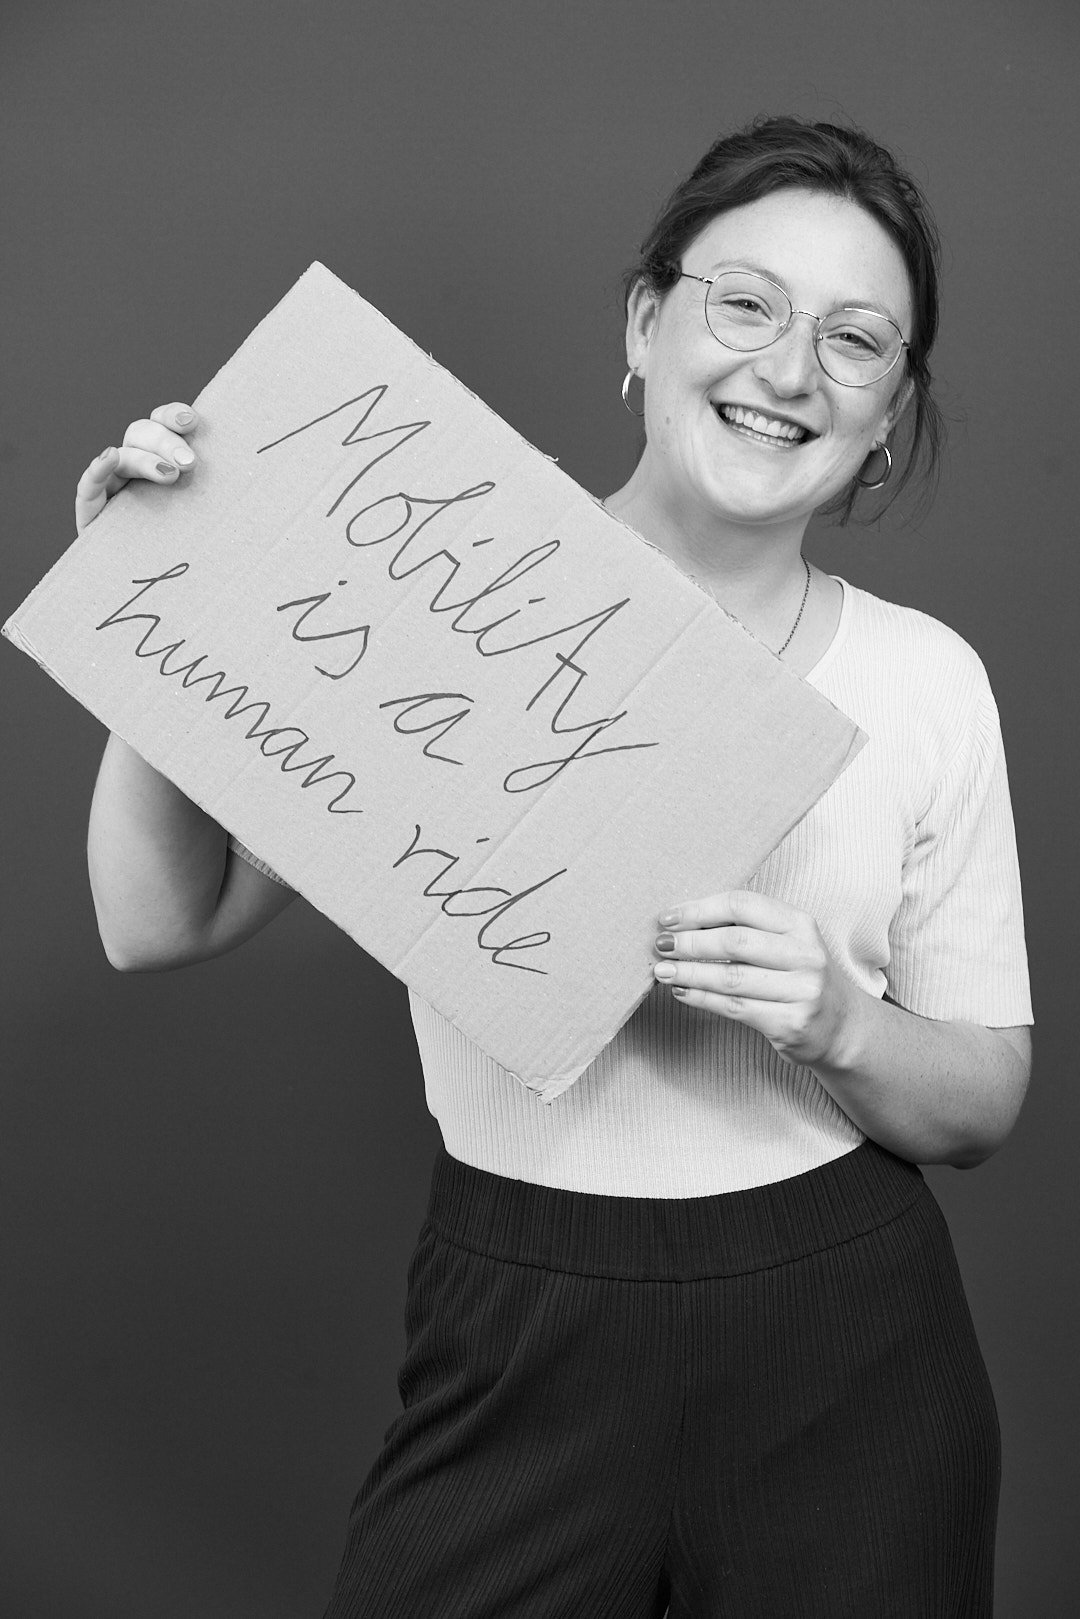 Mobility
is a
human ride